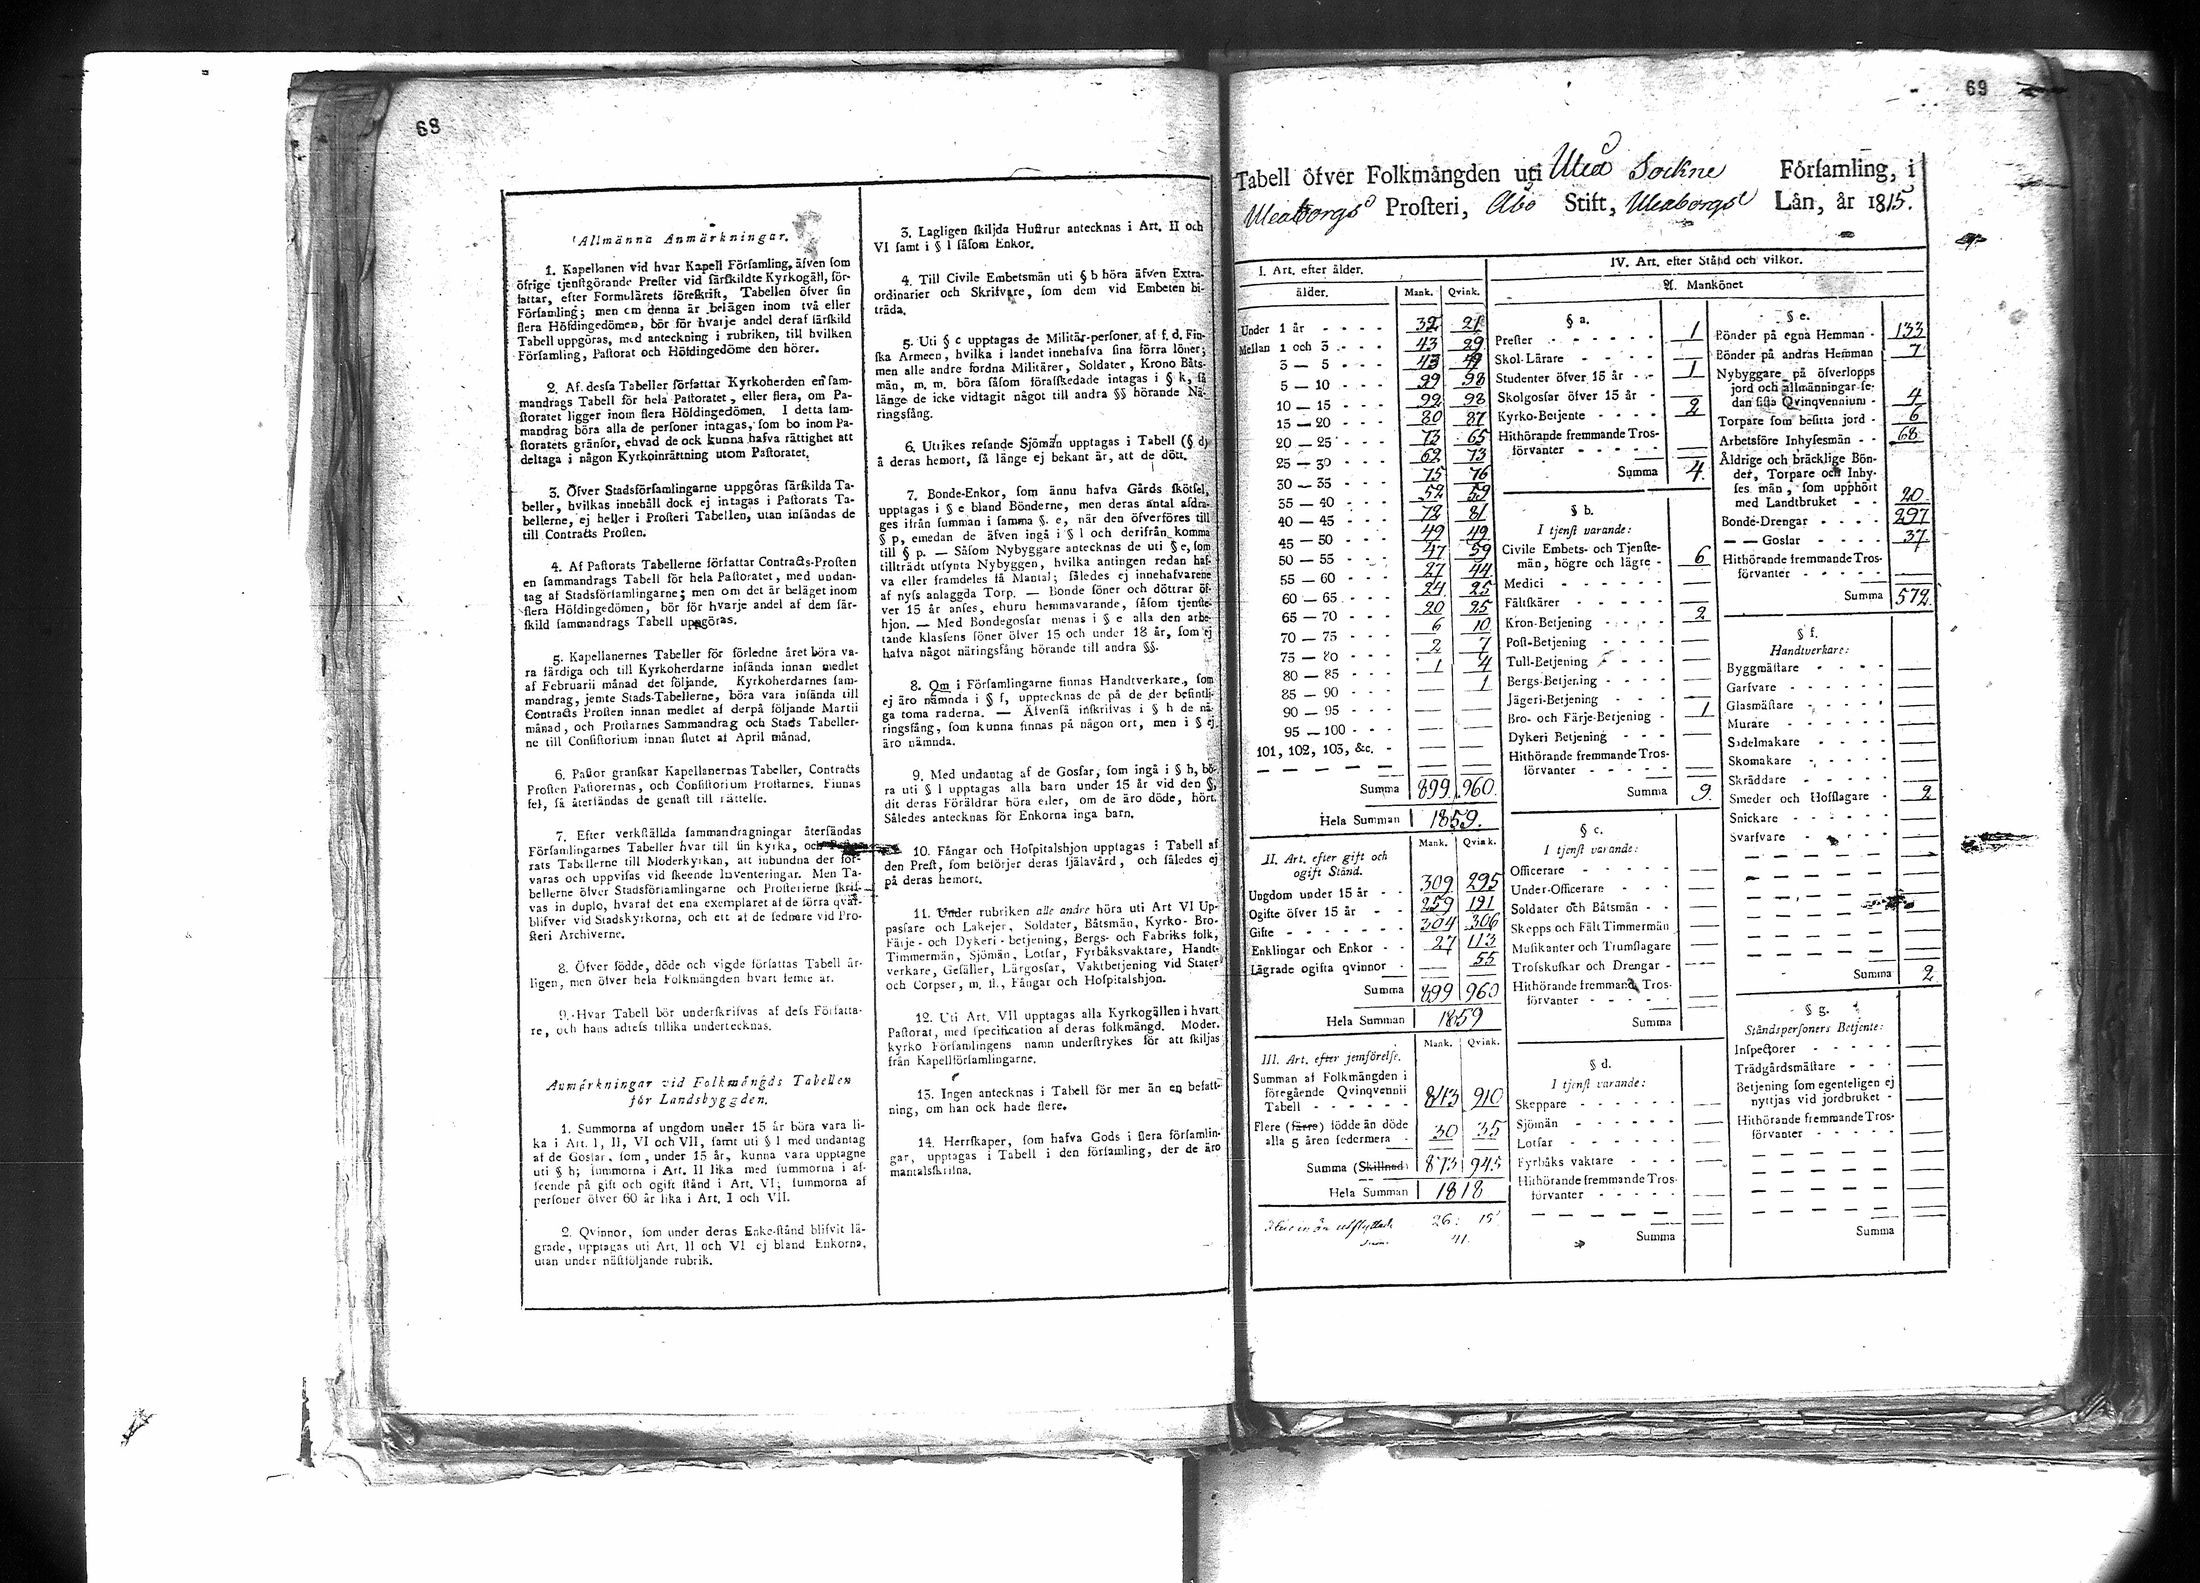 68
Allmänna Anmärkningar.
1. Kapellanen vid hvar Kapell Församling, äfven som
öfrige tjenstgörande Prester vid särskildte Kyrkogäll, för-
fattar, efter Formulärets föreskrift, Tabellen öfver sin
Församling; men om denna är belägen inom två eller
flera Höfdingedömen, bör för hvarje andel deraf särskild
Tabell uppgöras, med anteckning i rubriken, till hvilken
Församling, Pastorat och Höfdingedöme den hörer.
2. Af dessa Tabeller författar Kyrkoherden en sam-
mandrags Tabell för hela Pastoratet, eller flera, om Pa-
storatet ligger inom flera Höfdingedömen. I detta sam-
mandrag böra alla de personer intagas, som bo inom Pa-
storatets gränsor, ehvad de ock kunna hafva rättighet att
deltaga i någon Kyrkoinrättning utom Pastoratet.
3. Öfver Stadsförsamlingarne uppgöras särskilda Ta-
beller, hvilkas innehåll dock ej intagas i Pastorats Ta-
bellerne, ej heller i Prosteri Tabellen, utan insändas de
till Contracts Prosten.
4. Af Pastorats Tabellerne författar Contracts-Prosten
en sammandrags Tabell för hela Pastoratet, med undan-
tag af Stadsförsamlingarne; men om det är beläget inom
flera Höfdingedömen, bör för hvarje andel af dem sär-
skild sammandrags Tabell uppgöras.
5. Kapellanernes Tabeller för förledne året böra va-
ra färdiga och till Kyrkoherdarne insända innan medlet
af Februarii månad det följande. Kyrkoherdarnes sam-
mandrag, jemte Stads-Tabellerne, böra vara insända till
Contracts Prosten innan medlet af derpå följande Martii
månad, och Prostarnes Sammandrag och Stads Tabeller-
ne till Consistorium innan slutet af April månad.
6. Pastor granskar Kapellanernas Tabeller, Contracts
Prosten Pastorernas, och Consistorium Prostarnes. Finnas
fel, så återsändas de genast till rättelse.
7. Efter verkställda sammandragningar återsändas
Församlingarnes Tabeller hvar till sin kyrka, och Pasto-
rats Tabellerne till Moderkyrkan, att inbundna der för-
varas och uppvisas vid skeende Inventeringar. Men Ta-
bellerne öfver Stadsförsamlingarne och Prosterierne skrif-
vas in duplo, hvaraf det ena exemplaret af de förra qvar-
blifver vid Stadskyrkorna, och ett af de sednare vid Pro-
steri Archiverne.
8. Öfver födde, döde och vigde författas Tabell år-
ligen, men öfver hela Folkmängden hvart femte år.
9. Hvar Tabell bör underskrifvas af dess Författa-
re, och hans adress tillika undertecknas.
Anmärkningar vid Folkmängds Tabellen
för Landsbyggden.
1. Summorna af ungdom under 15 år böra vara li-
ka i Art. I, II, VI och VII, samt uti § l med undantag
af de Gossar, som, under 15 år, kunna vara upptagne
uti § h; summorna i Art. II lika med summorna i af-
seende på gift och ogift stånd i Art. VI; summorna af
personer öfver 60 år lika i Art. I och VII.
2. Qvinnor, som under deras Enke-stånd blifvit lä-
grade, upptagas uti Art. II och VI ej bland Enkorna,
utan under nästföljande rubrik.
3. Lagligen skiljda Hustrur antecknas i Art. II och
VI samt i § l såsom Enkor.
4. Till Civile Embetsmän uti § b höra äfven Extra-
ordinarier och Skrifvare, som dem vid Embeten bi-
träda.
5. Uti § c upptagas de Militär-personer af f. d. Fin-
ska Armeen, hvilka i landet innehafva sina förra löner;
men alle andre fordna Militärer, Soldater, Krono Båts-
män, m. m. böra såsom förafskedade intagas i § k, så
länge de icke vidtagit något till andra §§ hörande Nä-
ringsfång.
6. Utrikes resande Sjömän upptagas i Tabell (§ d)
å deras hemort, så länge ej bekant är, att de dött.
7. Bonde-Enkor, som ännu hafva Gårds skötsel,
upptagas i § e bland Bönderne, men deras antal afdra-
ges ifrån summan i samma §. e, när den öfverföres till
§ p, emedan de äfven ingå i § l och derifrån komma
till § p. — Såsom Nybyggare antecknas de uti § e, som
tillträdt utsynta Nybyggen, hvilka antingen redan haf-
va eller framdeles få Mantal; således ej innehafvarene
af nyss anlaggda Torp. — Bonde söner och döttrar öf-
ver 15 år anses, ehuru hemmavarande, såsom tjenste-
hjon. — Med Bondegossar menas i § e alla den arbe-
tande klassens söner öfver 15 och under 18 år, som ej
hafva något näringsfång hörande till andra §§.
8. Om i Församlingarne finnas Handtverkare, som
ej äro nämnda i § f, upptecknas de på de der befintli-
ga toma raderna. — Äfvenså inskrifvas i § h de nä-
ringsfång, som kunna finnas på någon ort, men i § ej
äro nämnda.
9. Med undantag af de Gossar, som ingå i § h, bö-
ra uti § l upptagas alla barn under 15 år vid den §,
dit deras Föräldrar höra eller, om de äro döde, hört.
Således antecknas för Enkorna inga barn.
10. Fångar och Hospitalshjon upptagas i Tabell af
den Prest, som besörjer deras själavård, och således ej
på deras hemort.
11. Under rubriken alle andre höra uti Art VI Up-
passare och Lakejer, Soldater, Båtsmän, Kyrko- Bro-
Färje - och Dykeri - betjening, Bergs- och Fabriks folk,
Timmermän, Sjömän, Lotsar, Fyrbåksvaktare, Handt-
verkare, Gesäller, Lärgossar, Vaktbetjening vid Stater
och Corpser, m. fl., Fångar och Hospitalshjon.
12. Uti Art. VII upptagas alla Kyrkogällen i hvart
Pastorat, med specification af deras folkmängd. Moder-
kyrko Församlingens namn understrykes för att skiljas
från Kapellförsamlingarne.
13. Ingen antecknas i Tabell för mer än en befatt-
ning, om han ock hade flere.
14. Herrskaper, som hafva Gods i flera församlin-
gar, upptagas i Tabell i den församling, der de äro
mantalsskrifna.
69
Tabell öfver Folkmängden uti Uleå Sockne Församling, i
Uleaborgs Prosteri, Åbo Stift, Uleaborgs Län, år 1815.
I. Art. efter ålder.
ålder. Mank. Qvink.
Under 1 år - - - - 32 21
Mellan 1 och 3 - - - - 43 29
3 — 5 - - - - 43 49
5 — 10 - - - 99 98
10 — 15 - - - 92 98
15 — 20 - - - 80 87
20 — 25 - - - 73 65
25 — 30 - - - 62 73
30 — 35 - - - 75 76
35 — 40 - - - 52 59
40 — 45 - - - 72 81
45 — 50 - - - 49 49
50 — 55 - - - 47 59
55 — 60 - - - 27 44
60 — 65 - - - 24 25
65 — 70 - - - 20 25
70 — 75 - - - 6 10
75 — 80 - - - 2 7
80 — 85 - - - 1 4
85 — 90 - - - — 1
90 — 95 - - - — —
95 — 100 - - - — —
101, 102, 103, &c. - — —
Summa 899 960.
Hela Summan 1859.
II. Art. efter gift och
ogift Stånd.
Mank. Qvink.
Ungdom under 15 år - - 309 295
Ogifte öfver 15 år - - 259 191
Gifte - - - - - - 304 306
Enklingar och Enkor - - 27 113
Lägrade ogifta qvinnor - — 55
Summa 899 960
Hela Summan 1859
III. Art. efter jemförelse.
Mank. Qvink.
Summan af Folkmängden i
föregående Qvinqvennii
Tabell - - - - - - 843 910
Flere (färre) födde än döde
alla 5 åren sedermera - 30 35
Summa (Skillnad) 873 945
Hela Summan 1818
Flere in än utflyttade 26. 15
41.
IV. Art. efter Stånd och vilkor.
A. Mankönet
§ a.
Prester - - - - - - 1
Skol-Lärare - - - - —
Studenter öfver 15 år - - 1
Skolgossar öfver 15 år - —
Kyrko-Betjente - - - - 2
Hithörande fremmande Tros-
förvanter - - - - - —
Summa 4.
§ b.
I tjenst varande:
Civile Embets- och Tjenste-
män, högre och lägre - 6
Medici - - - - - - —
Fältskärer - - - - - —
Kron-Betjening - - - - 2
Post-Betjening - - - - —
Tull-Betjening - - - - —
Bergs-Betjening - - - - —
Jägeri-Betjening - - - —
Bro- och Färje-Betjening - 1
Dykeri Betjening - - - —
Hithörande fremmande Tros-
förvanter - - - - - —
Summa 9.
§ c.
I tjenst varande:
Officerare - - - - - —
Under-Officerare - - - —
Soldater och Båtsmän - - —
Skepps och Fält Timmermän —
Musikanter och Trumslagare —
Trosskuskar och Drengar - —
Hithörande fremmande Tros-
förvanter - - - - - —
Summa
§ d.
I tjenst varande:
Skeppare - - - - - - —
Sjömän - - - - - - —
Lotsar - - - - - - —
Fyrbåks vaktare - - - —
Hithörande fremmande Tros-
förvanter - - - - - —
Summa
§ e.
Bönder på egna Hemman - 133
Bönder på andras Hemman 7
Nybyggare på öfverlopps
jord och allmänningar se-
dan sista Qvinqvennium - 4
Torpare som besitta jord - 6
Arbetsföre Inhysesmän - - 68
Åldrige och bräcklige Bön-
der, Torpare och Inhy-
ses män, som upphört
med Landtbruket - - 20
Bonde-Drengar - - - - 297
— — Gossar - - - - 37
Hithörande fremmande Tros-
förvanter - - - - - —
Summa 572
§ f.
Handtverkare:
Byggmästare - - - - —
Garfvare - - - - - —
Glasmästare - - - - —
Murare - - - - - - —
Sadelmakare - - - - —
Skomakare - - - - - —
Skräddare - - - - - —
Smeder och Hofslagare - 2
Snickare - - - - - - —
Svarfvare - - - - - —
Summa 2
§ g.
Ståndspersoners Betjente:
Inspectorer - - - - - —
Trädgårdsmästare - - - —
Betjening som egenteligen ej
nyttjas vid jordbruket - —
Hithörande fremmande Tros-
förvanter - - - - - —
Summa